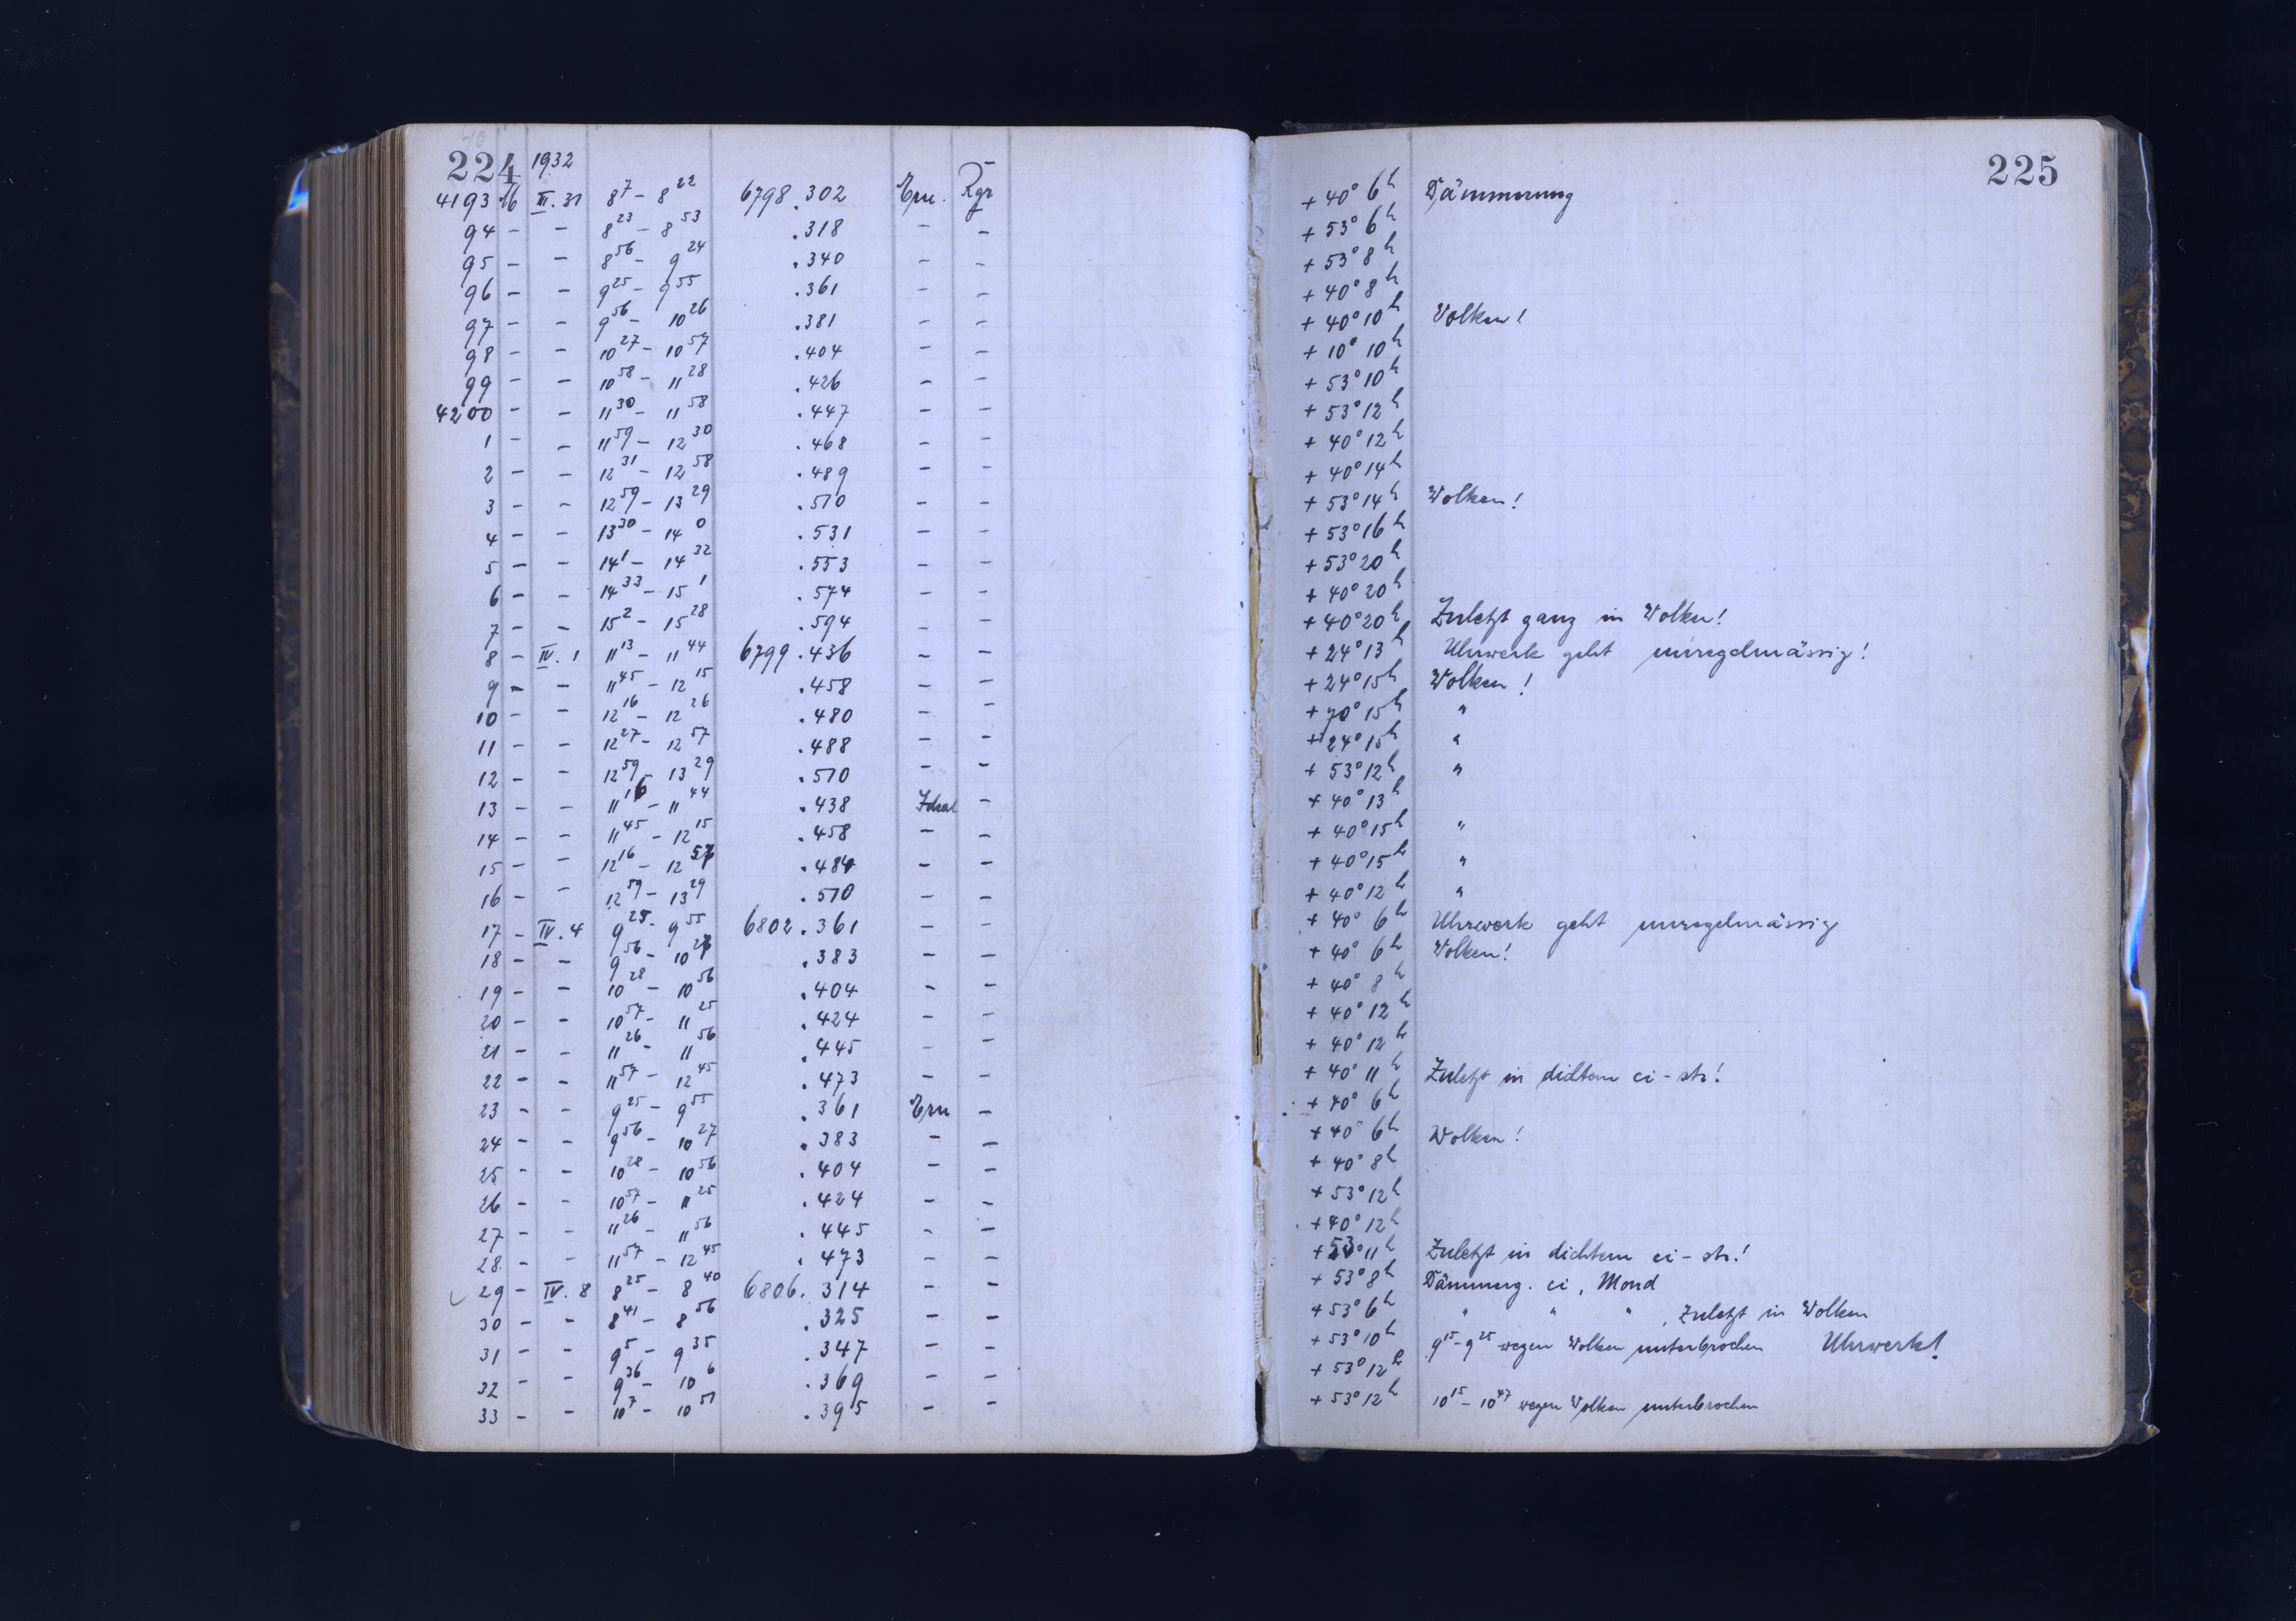 224 1932
4193 16 III. 31 8 7 – 8 22 6798 .302 Ern. Rgr + 40° 6h Dämmerung
94 – – 8 23 – 8 53 .318 – – + 53° 6h
95 – – 8 56 – 9 24 .340 – – + 53° 8h
96 – – 9 25 – 9 55 .361 – – + 40° 8h
97 – – 9 56 – 10 26 .381 – – + 40° 10h Wolken!
98 – – 10 27 – 10 57 .404 – – + 10° 10h
99 – – 10 58 – 11 28 .426 – – + 53° 10h
4200 – – 11 30 – 11 58 .447 – – + 53° 12h
1 – – 11 59 – 12 30 .468 – – + 40° 12h
2 – – 12 31 – 12 58 .489 – – + 40° 14h
3 – – 12 59 – 13 29 .510 – – + 53° 14h Wolken!
4 – – 13 30 – 14 0 .531 – – + 53° 16h
5 – – 14 1 – 14 32 .553 – – + 53° 20h
6 – – 14 33 – 15 1 .574 – – + 40° 20h
7 – – 15 2 – 15 28 .594 – – + 40° 20h Zuletzt ganz in Wolken!
8 – IV. 1 11 13 – 11 44 6799 .436 – – + 24° 13h Uhrwerk geht unregelmässig!
9 – – 11 45 – 12 15 .458 – – + 24° 15h Wolken!
10 – – 12 16 – 12 26 .480 – – + 70° 15h "
11 – – 12 27 – 12 57 .488 – – + 24° 15h "
12 – – 12 59 – 13 29 .510 – – + 53° 12h "
13 – – 11 16 – 11 44 .438 Ideal – + 40° 13h
14 – – 11 45 – 12 15 .458 – – + 40° 15h "
15 – – 12 16 – 12 57 .484 – – + 40° 15h "
16 – – 12 59 – 13 29 .510 – – + 40° 12h "
17 – IV. 4 9 25 – 9 55 6802 .361 – – + 40° 6h Uhrwerk geht unregelmässig
18 – – 9 56 – 10 27 .383 – – + 40° 6h Wolken!
19 – – 10 28 – 10 56 .404 – – + 40° 8h
20 – – 10 57 – 11 25 .424 – – + 40° 12h
21 – – 11 26 – 11 56 .445 – – + 40° 12h
22 – – 11 57 – 12 45 .473 – – + 40° 11h Zuletzt in dichtem ci – str!
23 – – 9 25 – 9 55 .361 Ern – + 40° 6h
24 – – 9 56 – 10 27 .383 – – + 40° 6h Wolken!
25 – – 10 28 – 10 56 .404 – – + 40° 8h
26 – – 10 57 – 11 25 .424 – – + 53° 12h
27 – – 11 26 – 11 56 .445 – – + 40° 12h
28. – – 11 57 – 12 45 .473 – – + 53° 11h Zuletzt in dichtem ci – str!
29 – IV. 8 8 25 – 8 40 6806. 314 – – + 53° 8h Dämmerg. ci, Mond
30 – – 8 41 – 8 56 .325 – – + 53° 6h " " " , Zuletzt in Wolken
31 – – 9 5 – 9 35 .347 – – + 53° 10h 9 15 – 9 25 wegen Wolken unterbrochen Uhrwerk!
32 – – 9 36 – 10 6 .369 – – + 53° 12h
33 – – 10 7 – 10 51 .395 – – + 53° 12h 10 15 – 10 47 wegen Wolken unterbrochen
225